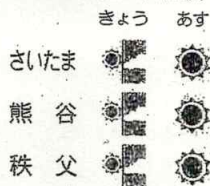 きょう あす
さいたま
熊谷
秩父